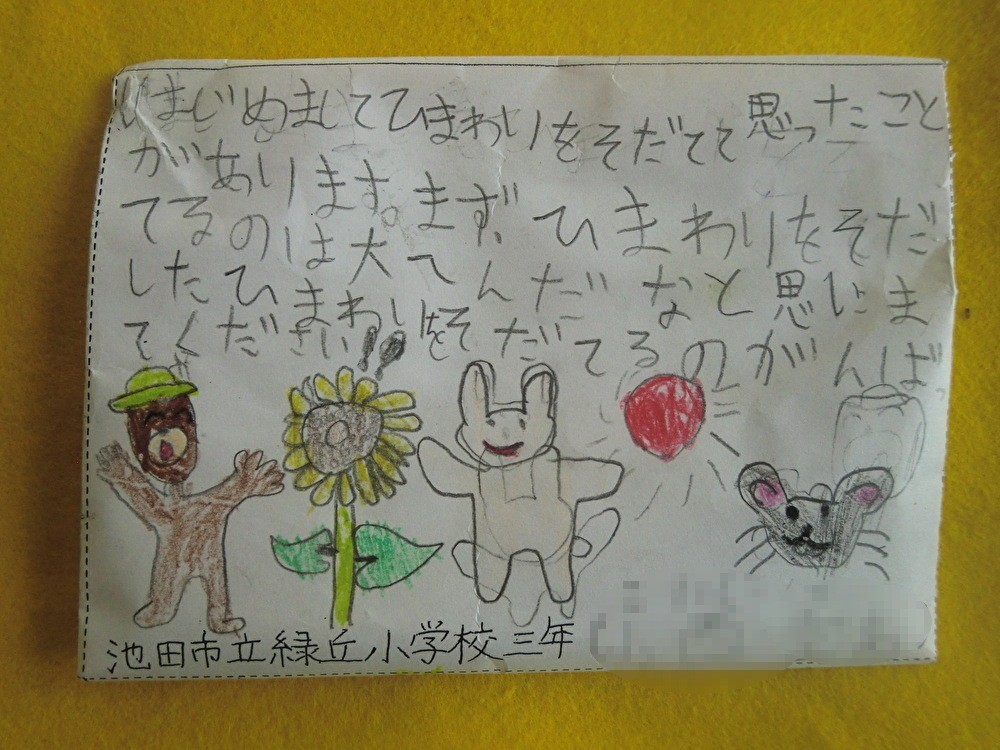 はじめましてひまわりをそだてて思ったこと
があります。まず、ひまわりをそだ
てるのは大へんだなと思いま
したひまわりをそだてるのがんば
てください!!
池田市立緑丘小学校三年